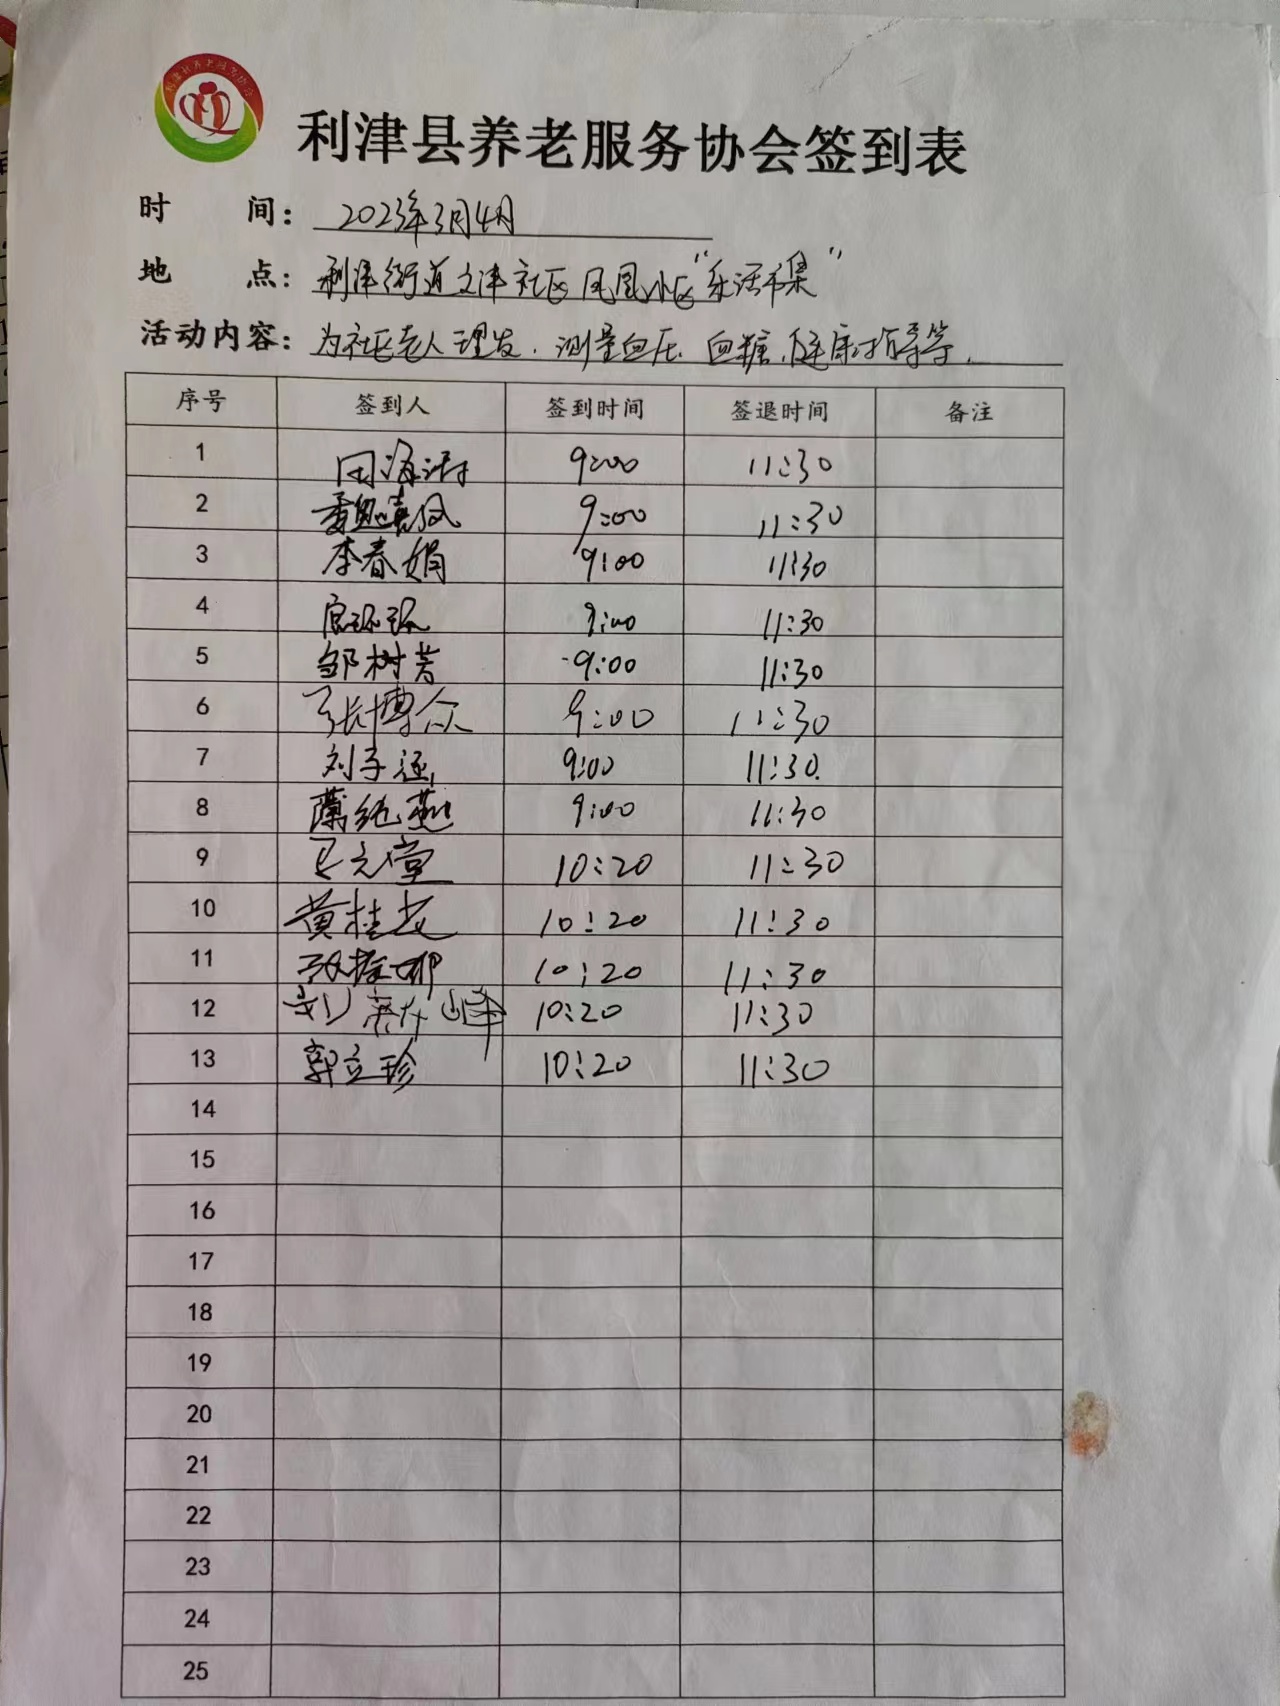 利津县养老服务协会
利津县养老服务协会签到表
时 间：2023年3月4日
地 点：利津街道文津社区凤凰小区“乐活市集”
活动内容：为社区老人理发、测量血压、血糖、健康指导等.
序号 签到人 签到时间 签退时间 备注
1 9:00 11:30
2 9:00 11:30
3 李春娟 9:00 11:30
4 9:00 11:30
5 邹树芳 9:00 11:30
6 张博众 9:00 11:30
7 刘子 9:00 11:30
8 9:00 11:30
9 10:20 11:30
10 黄桂 10:20 11:30
11 10:20 11:30
12 刘 峰 10:20 11:30
13 郭立珍 10:20 11:30
14
15
16
17
18
19
20
21
22
23
24
25